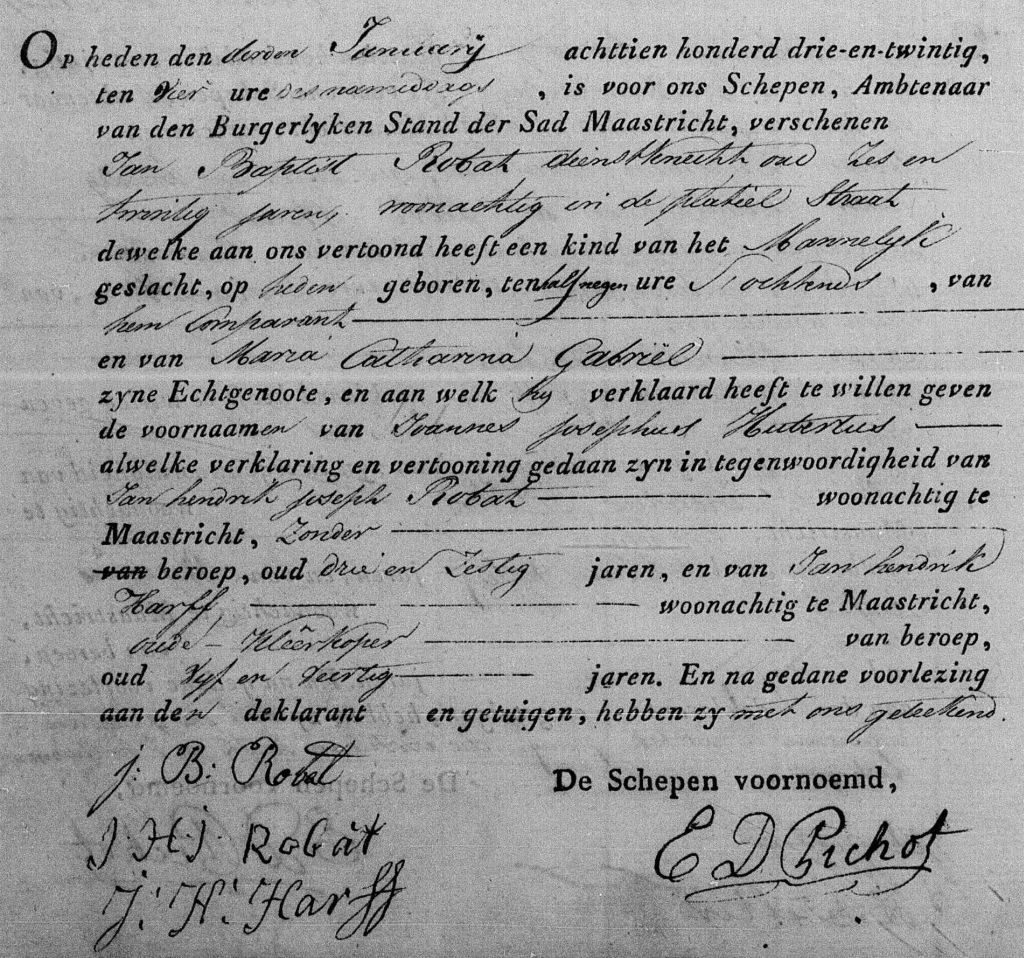 Op heden den derden Januarij achttien honderd drie-en-twintig,
ten vier ure des namiddags, is voor ons Schepen, Ambtenaar
van den Burgerlyken Stand der Sad Maastricht, verschenen
Jan Baptist Robat dienstknecht oud zes en
twintig jaren, woonachtig in de platiel Straat
dewelke aan ons vertoond heeft een kind van het Mannelyk
geslacht, op heden geboren, ten half negen ure S'ochtends, van
hem Comparant
en van Maria Catharina Gabriël
zyne Echtgenoote, en aan welk hy verklaard heeft te willen geven
de voornaamen van Joannes josephus Hubertus
alwelke verklaring en vertooning gedaan zyn in tegenwoordigheid van
Jan hendrik joseph Robat woonachtig te
Maastricht, Zonder
van beroep, oud drie en Zestig jaren, en van Jan hendrik
Harff, woonachtig te Maastricht,
oude-Kleêrkoper van beroep,
oud vyf en veertig jaren. En na gedane voorlezing
aan den deklarant en getuigen, hebben zy met ons geteekend.
j: B: Robat
De Schepen voornoemd,
J·H·J· Robat
E D Pichot
J: H: Harff